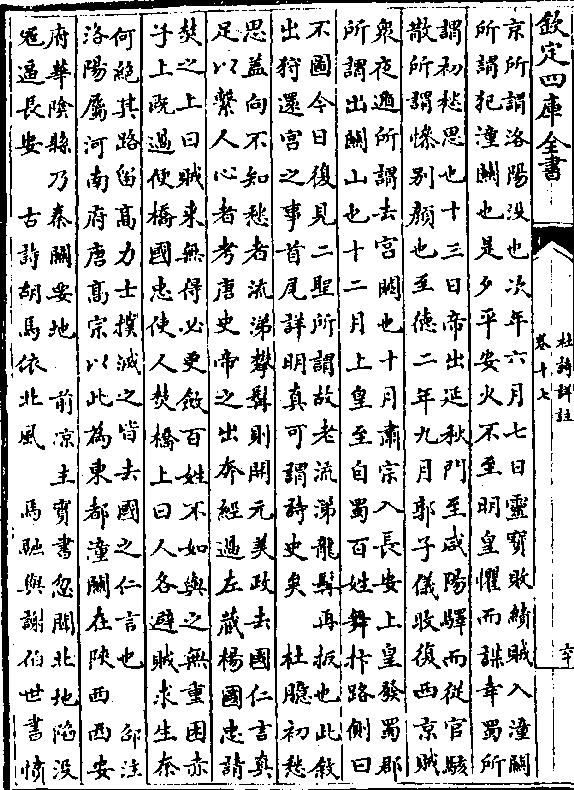 欽定四庫全書
杜詩詳註
卷十七
京所謂洛陽没也次年六月七日靈寳敗績賊入潼關
所謂犯潼關也是夕平安火不至明皇懼而謀幸蜀所
謂初愁思也十三日帝出延秋門至咸陽驛而從官駭
散所謂慘别顔也至德二年九月郭子儀收復西京賊
衆夜遁所謂去宮闕也十月肅宗入長安上皇發蜀郡
所謂出關山也十二月上皇至自蜀百姓舞抃路側曰
不圖今日復見二聖所謂故老流涕龍髯再扳也此敘
出狩還宮之事首尾詳明真可謂詩史矣 杜臆初愁
思蓋向不知愁者流涕攀髯則開元美政去國仁言真
足以繫人心者考唐史帝之出奔經過左藏楊國忠請
焚之上曰賊來無得必更斂百姓不如與之無重困赤
子上既過便橋國忠使人焚橋上曰人各避賊求生奈
何絶其路留髙力士撲滅之皆去國之仁言也 邵注
洛陽屬河南府唐髙宗以此為東都潼關在陜西西安
府華隂縣乃秦關要地 前凉主寳書忽聞北地陷没
宼逼長安 古詩胡馬依北風 馬融與謝伯世書憤